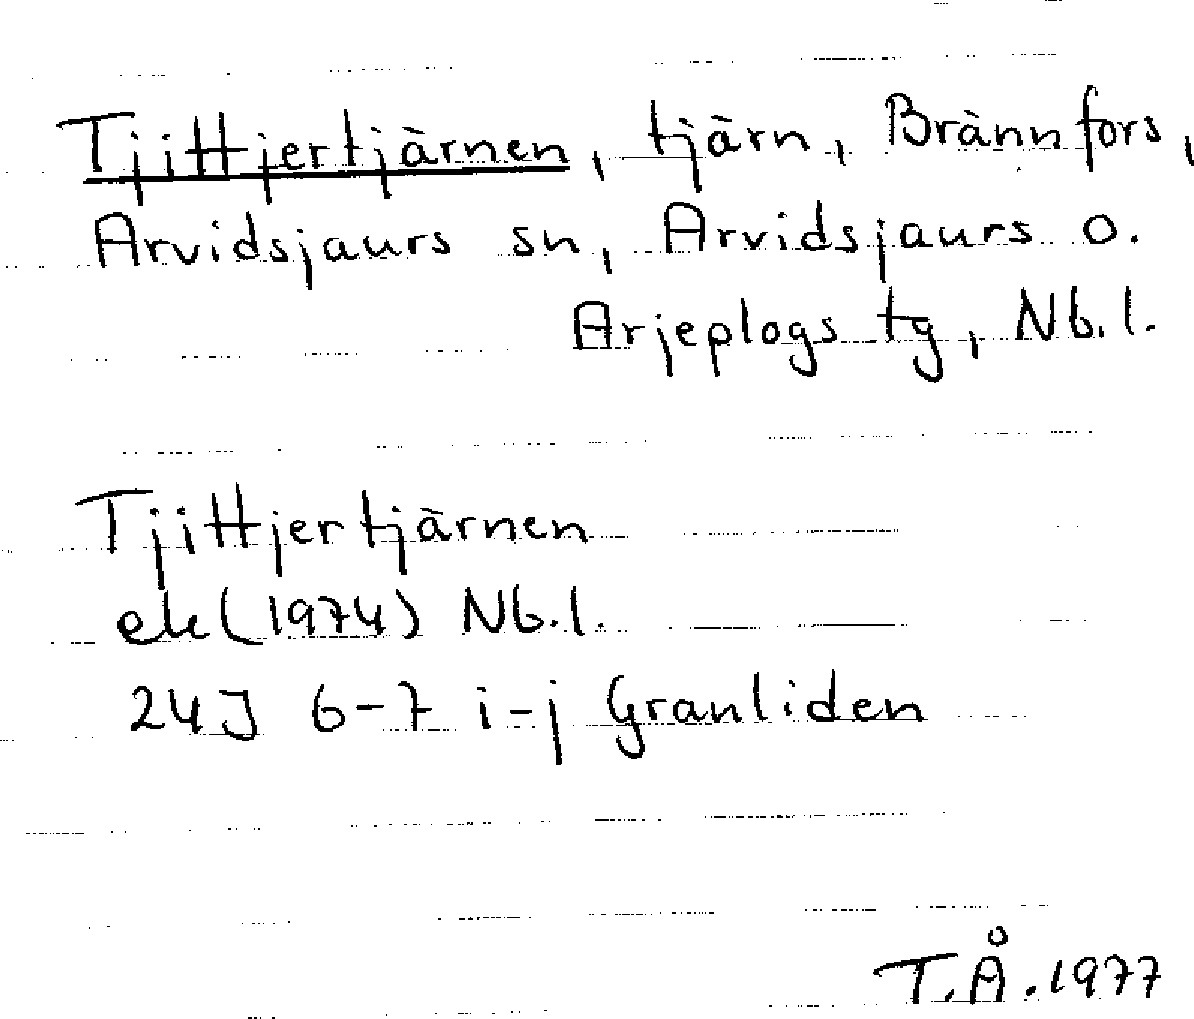 Tjittjertjärnen, tjärn, Brännfors,
Arvidsjaurs sn, Arvidsjaurs o.
Arjeplogs tg, Nb.l.
Tjittjertjärnen
ek (1974) Nb.l.
24J 6-7 i-j Granliden
T.Å.1977